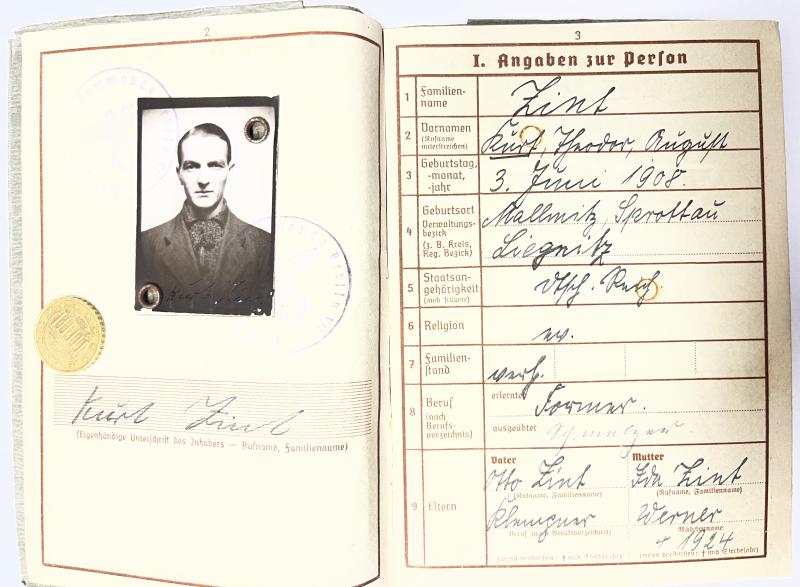 2
Kurt Zint
(Eigenhändige Unterschrift des Inhabers — Rufname, Familienname)
3
I. Angaben zur Person
1 Familien-
name
Zint
2 Vornamen
(Rufname
unterstreichen)
Kurt, Theodor, August
3 Geburtstag,
-monat,
-jahr
3. Juni 1908.
4 Geburtsort
Verwaltungs-
bezirk
(z. B. Kreis,
Reg. Bezirk)
Mallmitz, Sprottau
Liegnitz
5 Staatsan-
gehörigkeit
(auch frühere)
dtsch. Reich.
6 Religion
ev.
7 Familien-
stand
verh.
8 Beruf
(nach
Berufs-
verzeichnis)
erlernter
Former.
ausgeübter
Schmelzer.
9 Eltern
Vater
Otto Zint
(Rufname, Familienname)
Klempner
Beruf (nach Berufsverzeichnis)
(wenn verstorben: † und Sterbejahr)
Mutter
Ida Zint
(Rufname, Familienname)
Werner
Mädchenname
† 1924
(wenn verstorben: † und Sterbejahr)